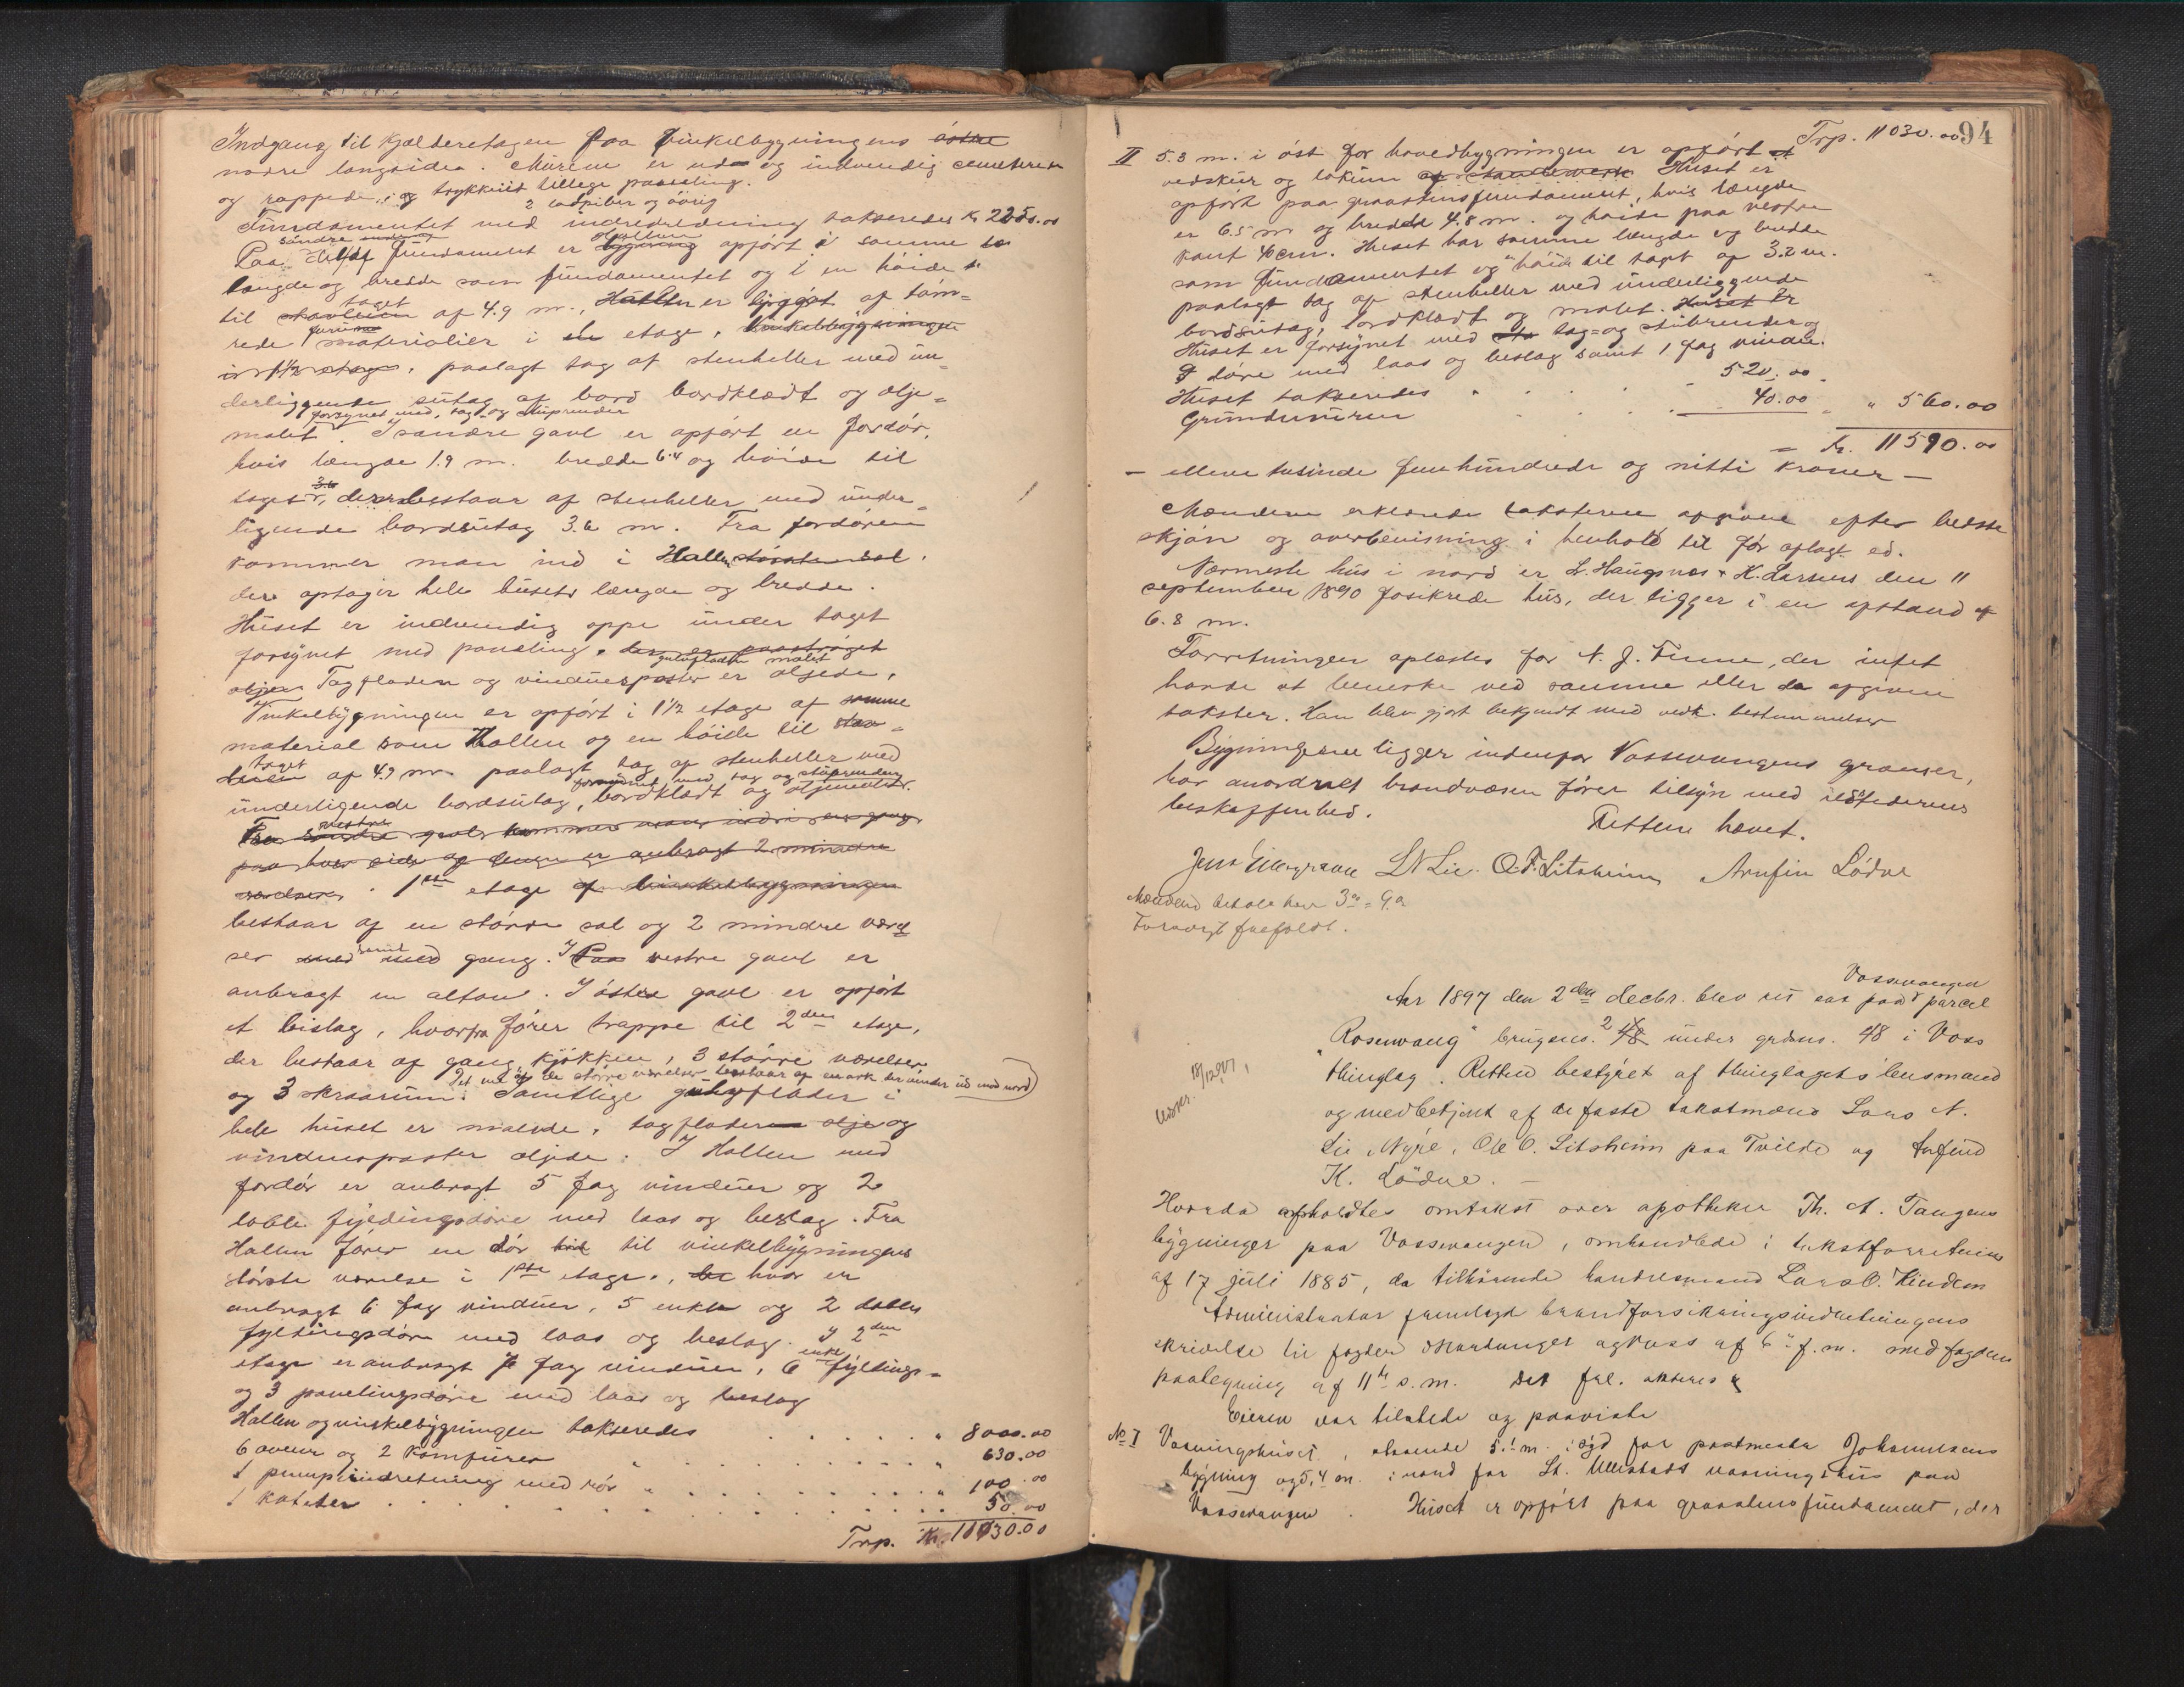 Indgang til kjælderetagen paa vinkelbygningens østre
nordre langside. Muren er ud- og indvendig cementeret
og rappede,
2 ladpiber og øvrig
Fundamentet med indredredning takseredes Kr 2250.00
søndre
Paa del af fundamentet er Hallen bygning opført i samme
længde og bredde som fundamentet og i en høide
taget
til af 4.9 m., Hallen er bygget af tøm-
rede materialier i en etage, vinkelbygningen
i 1½ etage, paalagt tag af stenheller med un-
derliggende sutag af bord bordklædt og olje-
forsynet med tag og stuprender
malet. I søndre gavl er opført en fordør,
hvis længde 1.9 m. bredde 6.4 og høide til
taget, der bestaar af stenheller med under-
liggende bordsutag 3.6 m. Fra fordøren
kommer man ind i Hallen
der optager hele husets længde og bredde.
Huset er indvendig oppe under taget
forsynet med paneling, der er paastrøget
gulvfladen malet
oljen Tagfladen og vinduesposter er oljede.
Vinkelbygningen er opført i 1½ etage af samme
material som Hallen og en høide til
taget
af 4.9 m. paalagt tag af stenheller med
forsynet med tag og stuprender
underliggende bordsutag, bordklædt og oljemalet.
Fra vestre gavl kommer man ind i en gang
paa hver side af denne er anbragt 2 mindre
værelser. 1ste etage af vinkelbygningen
bestaar af en større sal og 2 mindre værel
ser samt med gang. I Paa vestre gavl er
anbragt en altan. I østre gavl er opført
et bislag, hvorfra fører trappe til 2den etage,
der bestaar af gang, kjøkken, 3 større værelser
Det ene af de større værelser bestaar af en ark der vender ud mod nord
og 3 skraarum. Samtlige gulvflader i
hele huset er malede, tagflader olje og
vinduesposter oljede. I Hallen med
fordør er anbragt 5 fag vinduer og 2
doble fyldingsdøre med laas og beslag. Fra
Hallen fører en dør til vinkelbygningens
største værelse i 1ste etage, hvor er
anbragt 6 fag vinduer, 5 enkle og 2 doble
fyldingsdøre med laas og beslag. I 2den
etage er anbragt 7 fag vinduer, 6 enkl fyldings-
og 3 panelingsdøre med laas og beslag
Hallen og vinkelbygningen takseredes . . . . " 8000.00
6 ovne og 2 komfurer " . . . . " 630.00
1 pumpeindretning med rør " . . . . " 100.00
1 kateter . . . . 50.00
Trp. Kr. 11030.00
94
Trp. 11030.00
II 5.3 m. i øst for hovedbygningen er opført et
vedskur og lokum af standeværk Huset er
opført paa graastensfundament, hvis længde
er 6.5 m og bredde 4.8 m. og høide paa vestre
kant 40 cm. Huset har samme længde og bredde
som fundamentet og høide til taget af 3.2 m.
paalagt tag af stenheller med underliggende
bordsutag, bordklædt og malet. Huset er
Huset er forsynet med tag- og stuprender og
døre med laas og beslag samt 1 fag vindu.
Huset takseredes " . . . 520.00
Grundmuren . . . 40.00 " 560.00
Kr. 11590.00
— elleve tusinde femhundrede og nitti kroner —
Mændene erklærede taksterne afgivne efter bedste
skjøn og overbevisning i henhold til før aflagt ed.
Nærmeste hus i nord er L. Haugnæs & K. Larsens den 11
september 1890 fosikrede hus, der ligger i en afstand af
6.8 m.
Forretningen oplæstes for N. J. Finne, der intet
havde at bemerke ved samme eller de afgivne
takster. Han blev gjort bekjendt med vedk. bestemmelser
Bygningerne ligger indenfor Vossevangens grænser,
har anordnet brandvæsen fører tilsyn med ildstedernes
beskaffenhed.
Retten hævet.
L N Lie. O. F. Litsheim Arnfin Lødve
Mændene betale hver 3 00 = 9.00
Vossevangen
Aar 1897 den 2den decbr. blev ret sat paa parcel
"Rosenvang" brugsno. 2 48 under grdsno. 48 i Voss
18/12 97,
thinglag. Retten bestyret af thinglagets lensmand
og medbetjent af de faste takstmænd Lars N.
Lie Nyre, Ole O. Litsheim paa Tvilde og Anfind
K. Lødve. —
Hvorda afholdtes omtakst over apotheker Th. A. Tangens
bygninger paa Vossevangen, omhandlede i takstforretning
af 17 juli 1885, da tilhørende handelsmand Lars O. Kindem
Administrator fremlagde brandforsikringsindretningens
skrivelse til fogden i Hardanger og Voss af 6te f.m. med fogdens
paategning af 11te s.m. Det frl. akteres
Eieren var tilstede og paaviste
No I Vaaningshuset, staaende 5.1 m. i syd for postmester Johannesens
bygning og 5,4 m. i nord for St. Ullestads vaaningshus paa
Vossevangen. Huset er opført paa graastensfundament, der